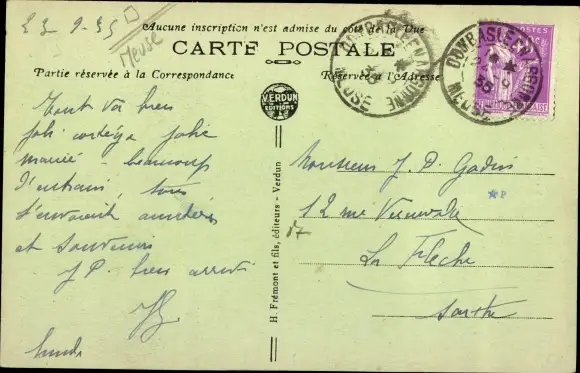 23-9-35
Meuse
Aucune inscription n'est admise du côté de la Vue
CARTE POSTALE
Partie réservée à la Correspondance
Réservée à l'Adresse
VERDUN
EDITIONS
H. Frémont et fils, éditeurs - Verdun
DOMBASLE EN ARGONNE
MEUSE
DOMBASLE EN ARGONNE
MEUSE
POSTES
Tout va bien
joli cortège jolie
mariée - beaucoup
d'entrain, tous
t'envoient amitiés
et souvenirs
J P bien arrivé
Lundi
Monsieur J. P. Gadin
12 rue
La Flèche
Sarthe
17